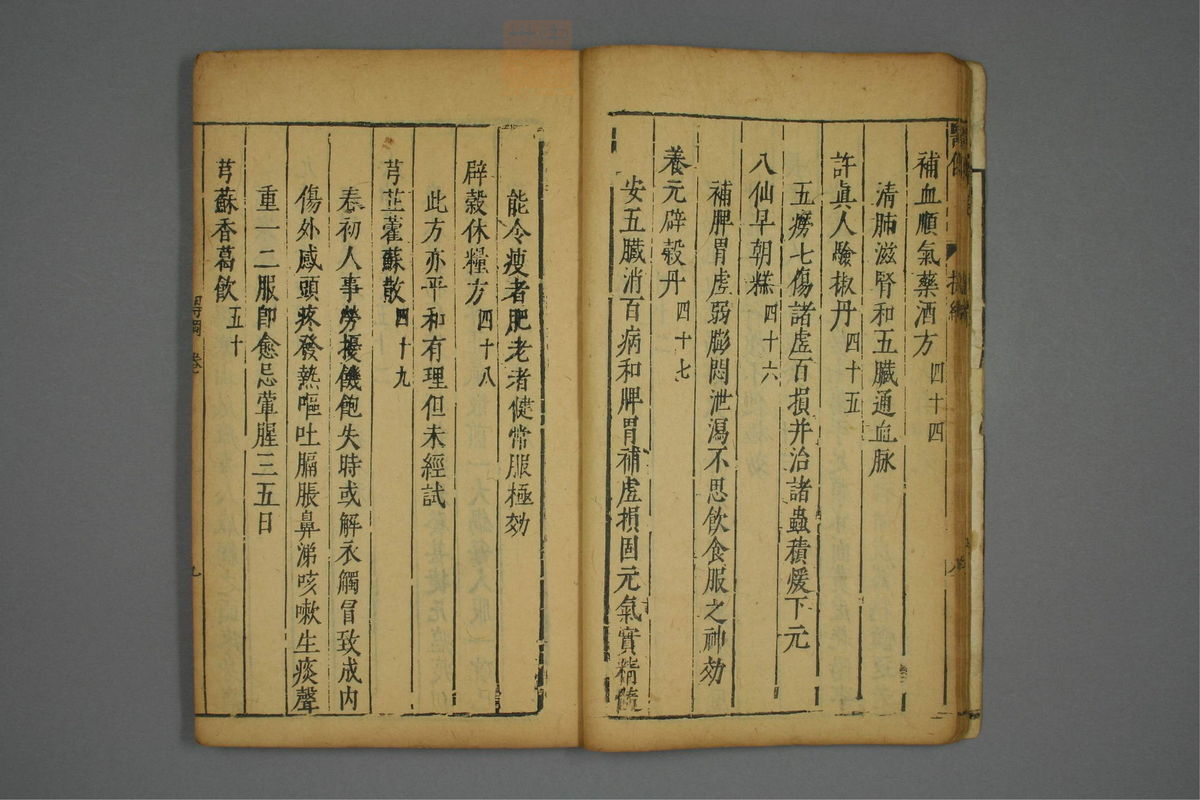 補血順氣藥酒方 四十四
清肺滋腎和五臟通血脉
許眞人驗椒丹 四十五
五癆七傷諸虛百損并治諸蟲積煖下元
八仙早朝糕 四十六
補脾胃虛弱膨悶泄瀉不思飲食服之神効
養元辟穀丹 四十七
安五臟消百病和脾胃補虛損固元氣實精髓
能令瘦者肥老者健常服極効
辟穀休糧方 四十八
此方亦平和有理但未經試
芎芷藿蘇散 四十九
春初人事勞擾饑飽失時或解衣觸冒致成內
傷外感頭疼發熱嘔吐膈脹鼻涕咳嗽生痰聲
重一二服卽愈忌葷腥三五日
芎蘇香葛飲 五十